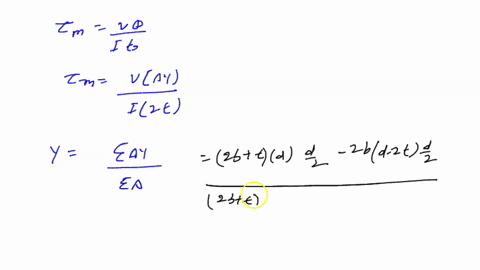 τm = VQ / It
τm = V(AY) / I(2t)
Y = ΣAY / ΣA = (2b+t)(d) d/2 - 2b(d-2t) d/2 / (2b+t)